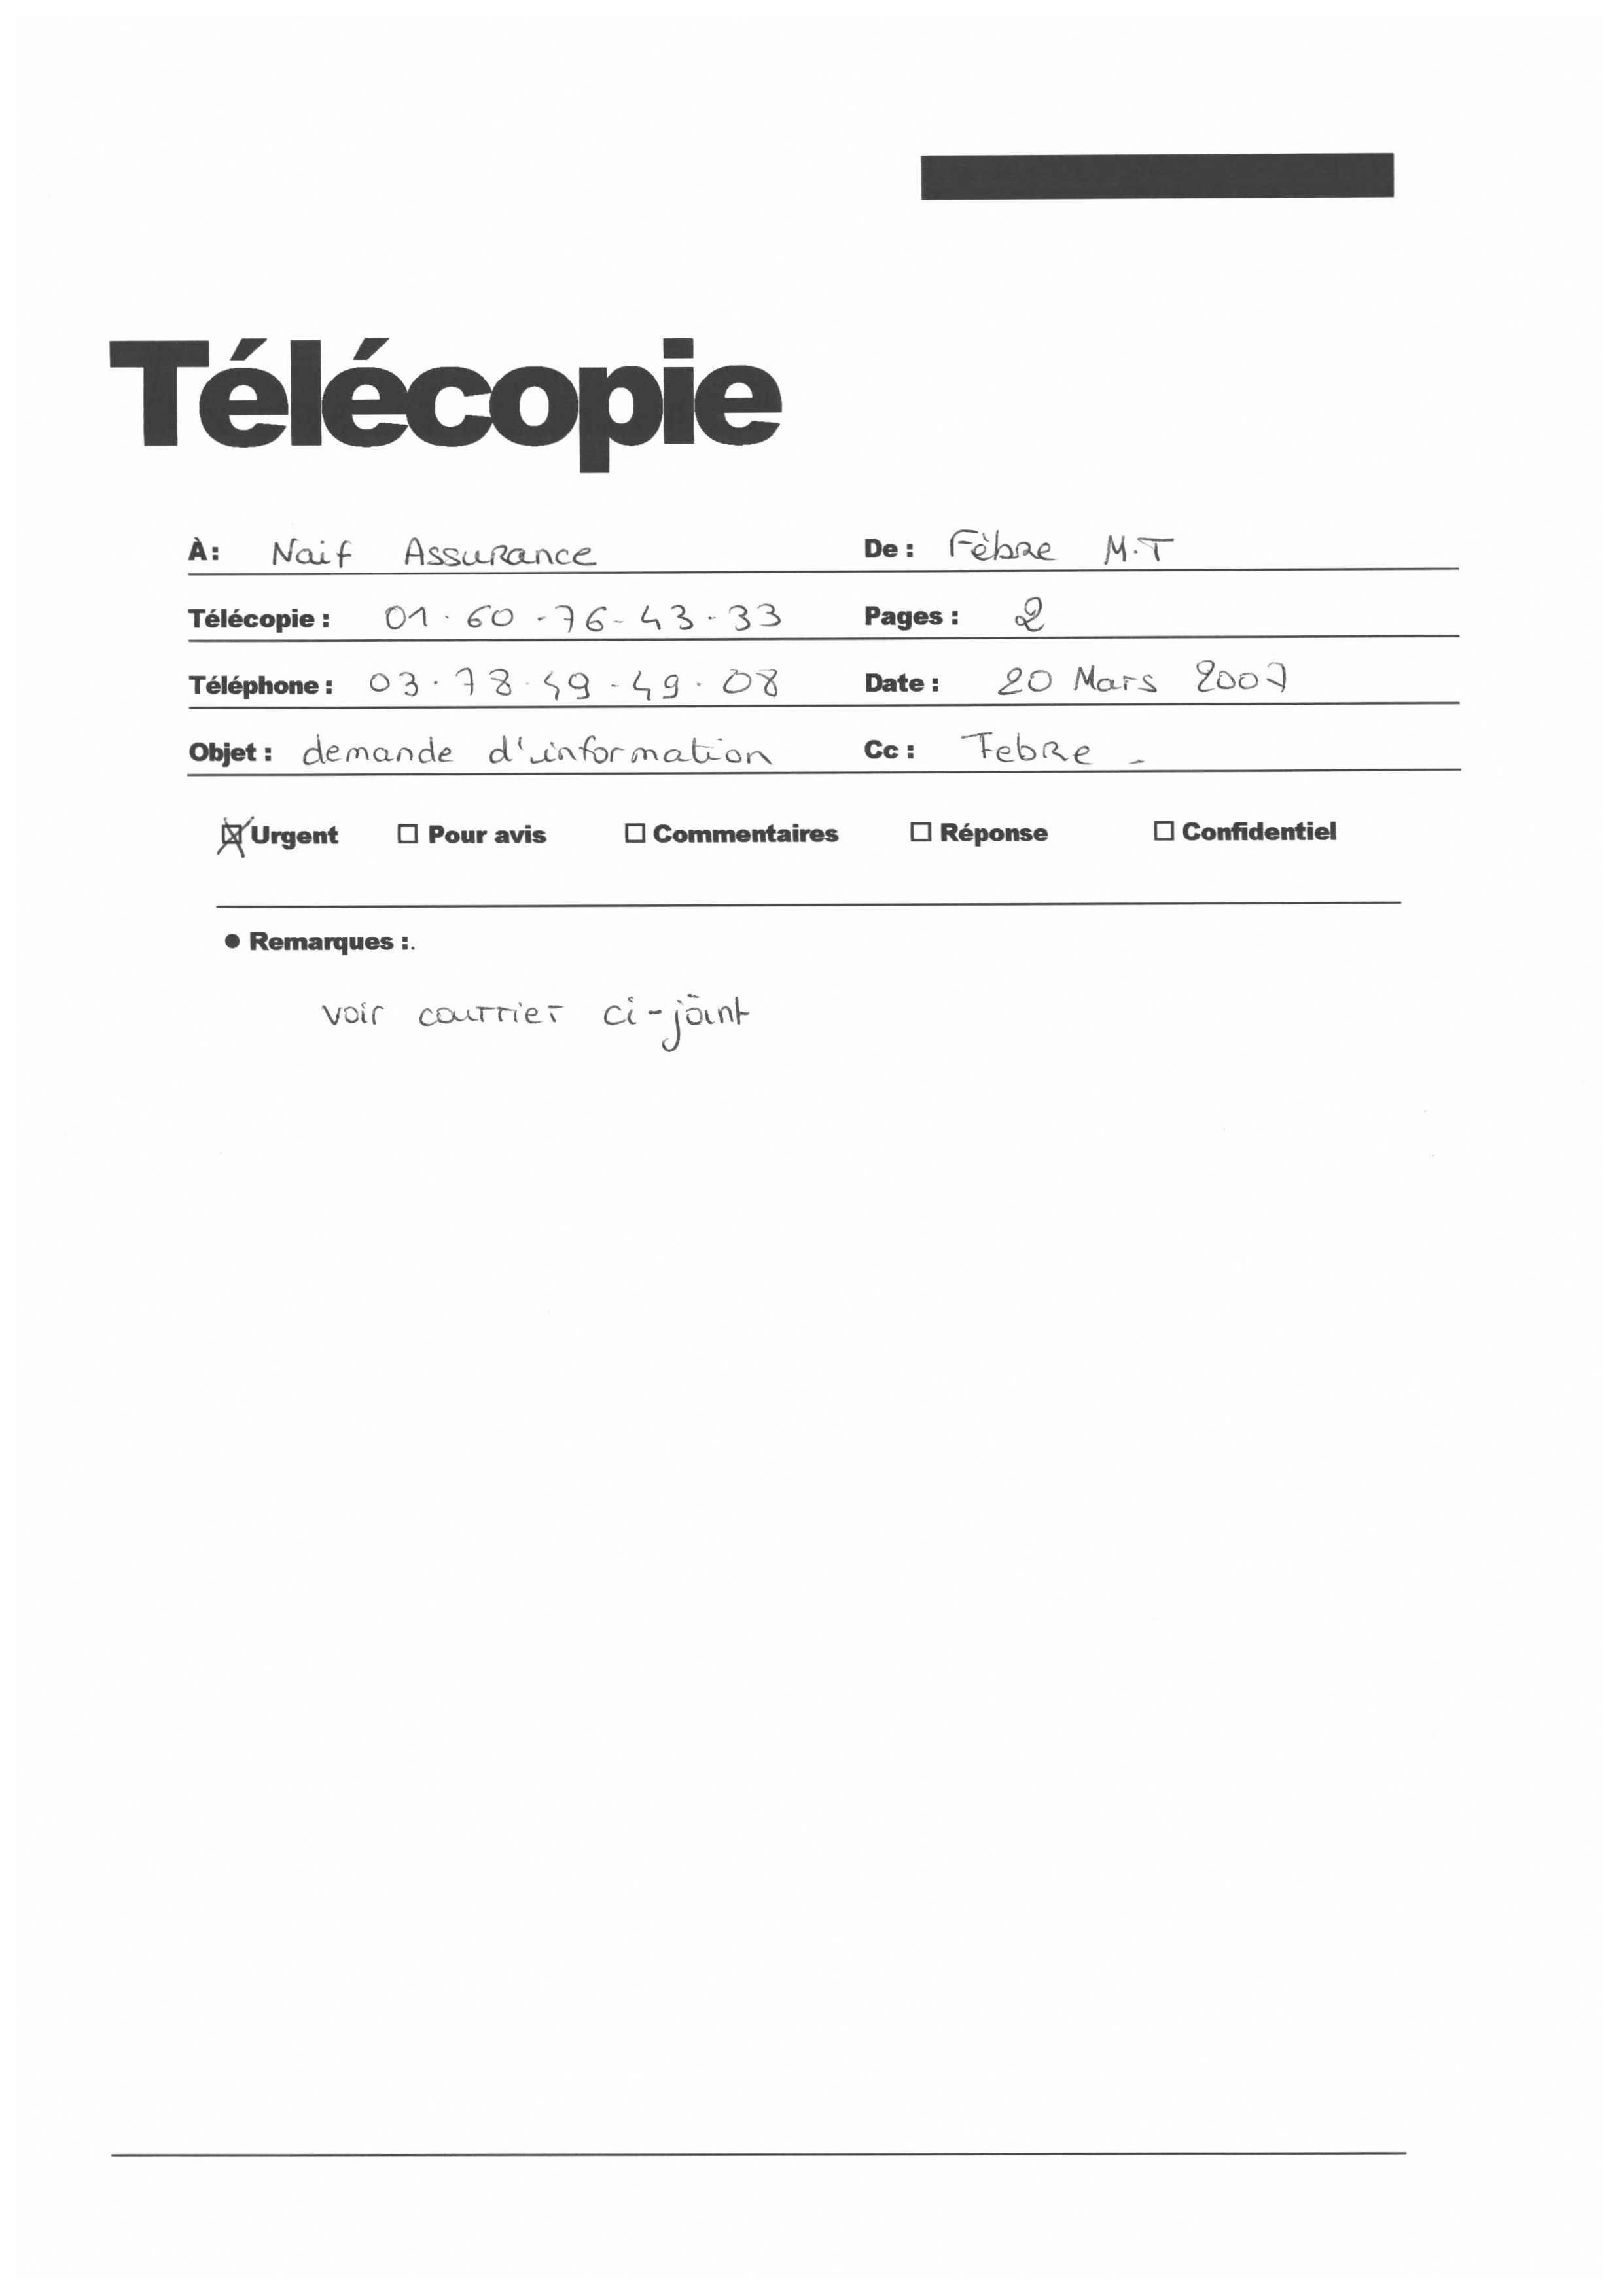 Télécopie
À: Naif Assurance De : Fèbre M.T
Télécopie : 01.60-76-43-33 Pages : 2
Téléphone : 03.78.49-49.08 Date : 20 Mars 2007
Objet : demande d'information Cc : Febre -
Urgent Pour avis Commentaires Réponse Confidentiel
Remarques :.
voir courrier ci-joint